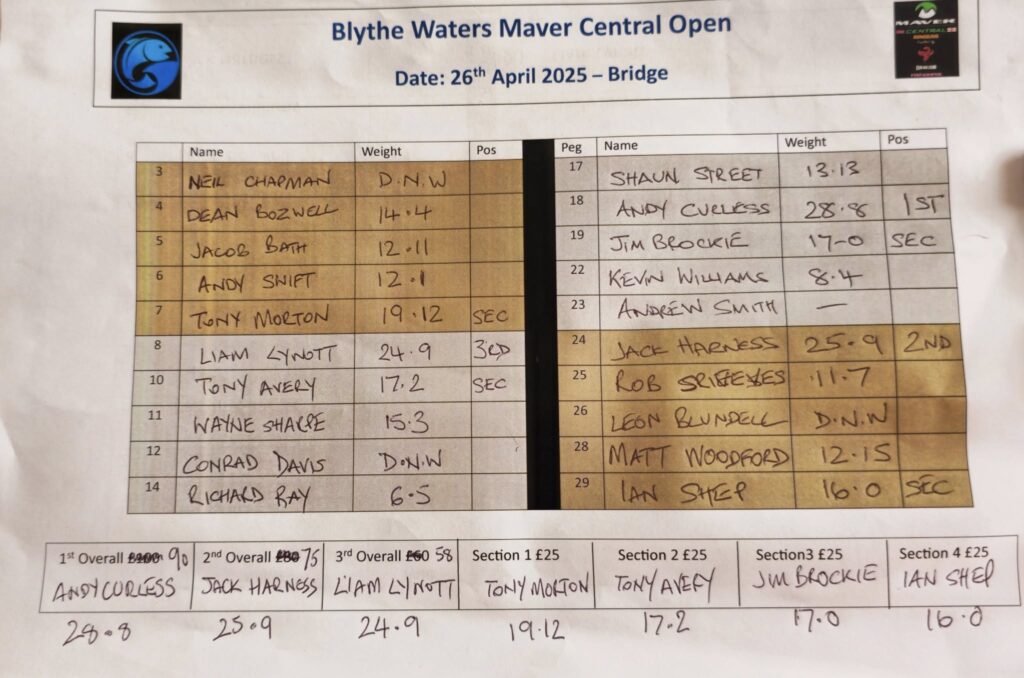 Blythe Waters Maver Central Open
Date: 26th April 2025 – Bridge
MAVER
CENTRAL
Name Weight Pos
3 NEIL CHAPMAN D.N.W
4 DEAN BOZWELL 14.4
5 JACOB BATH 12.11
6 ANDY SWIFT 12.1
7 TONY MORTON 19.12 SEC
8 LIAM LYNOTT 24.9 3RD
10 TONY AVERY 17.2 SEC
11 WAYNE SHARPE 15.3
12 CONRAD DAVIS D.N.W
14 RICHARD RAY 6.5
Peg Name Weight Pos
17 SHAUN STREET 13.13
18 ANDY CURLESS 28.8 1ST
19 JIM BROCKIE 17-0 SEC
22 KEVIN WILLIAMS 8.4
23 ANDREW SMITH —
24 JACK HARNESS 25.9 2ND
25 ROB 11.7
26 LEON BLUNDELL D.N.W
28 MATT WOODFORD 12.15
29 IAN SHEP 16.0 SEC
1st Overall £100 90
ANDY CURLESS
28.8
2nd Overall £80 75
JACK HARNESS
25.9
3rd Overall £60 58
LIAM LYNOTT
24.9
Section 1 £25
TONY MORTON
19.12
Section 2 £25
TONY AVERY
17.2
Section3 £25
JIM BROCKIE
17.0
Section 4 £25
IAN SHEP
16.0